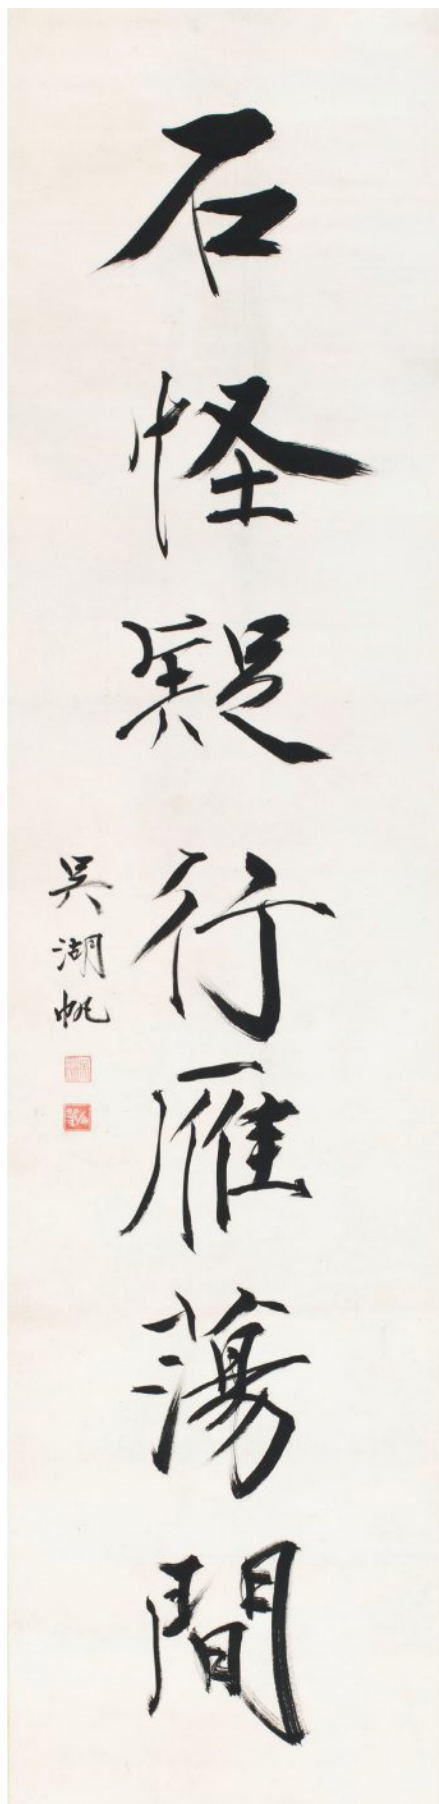 石怪疑行雁蕩間
吳湖帆